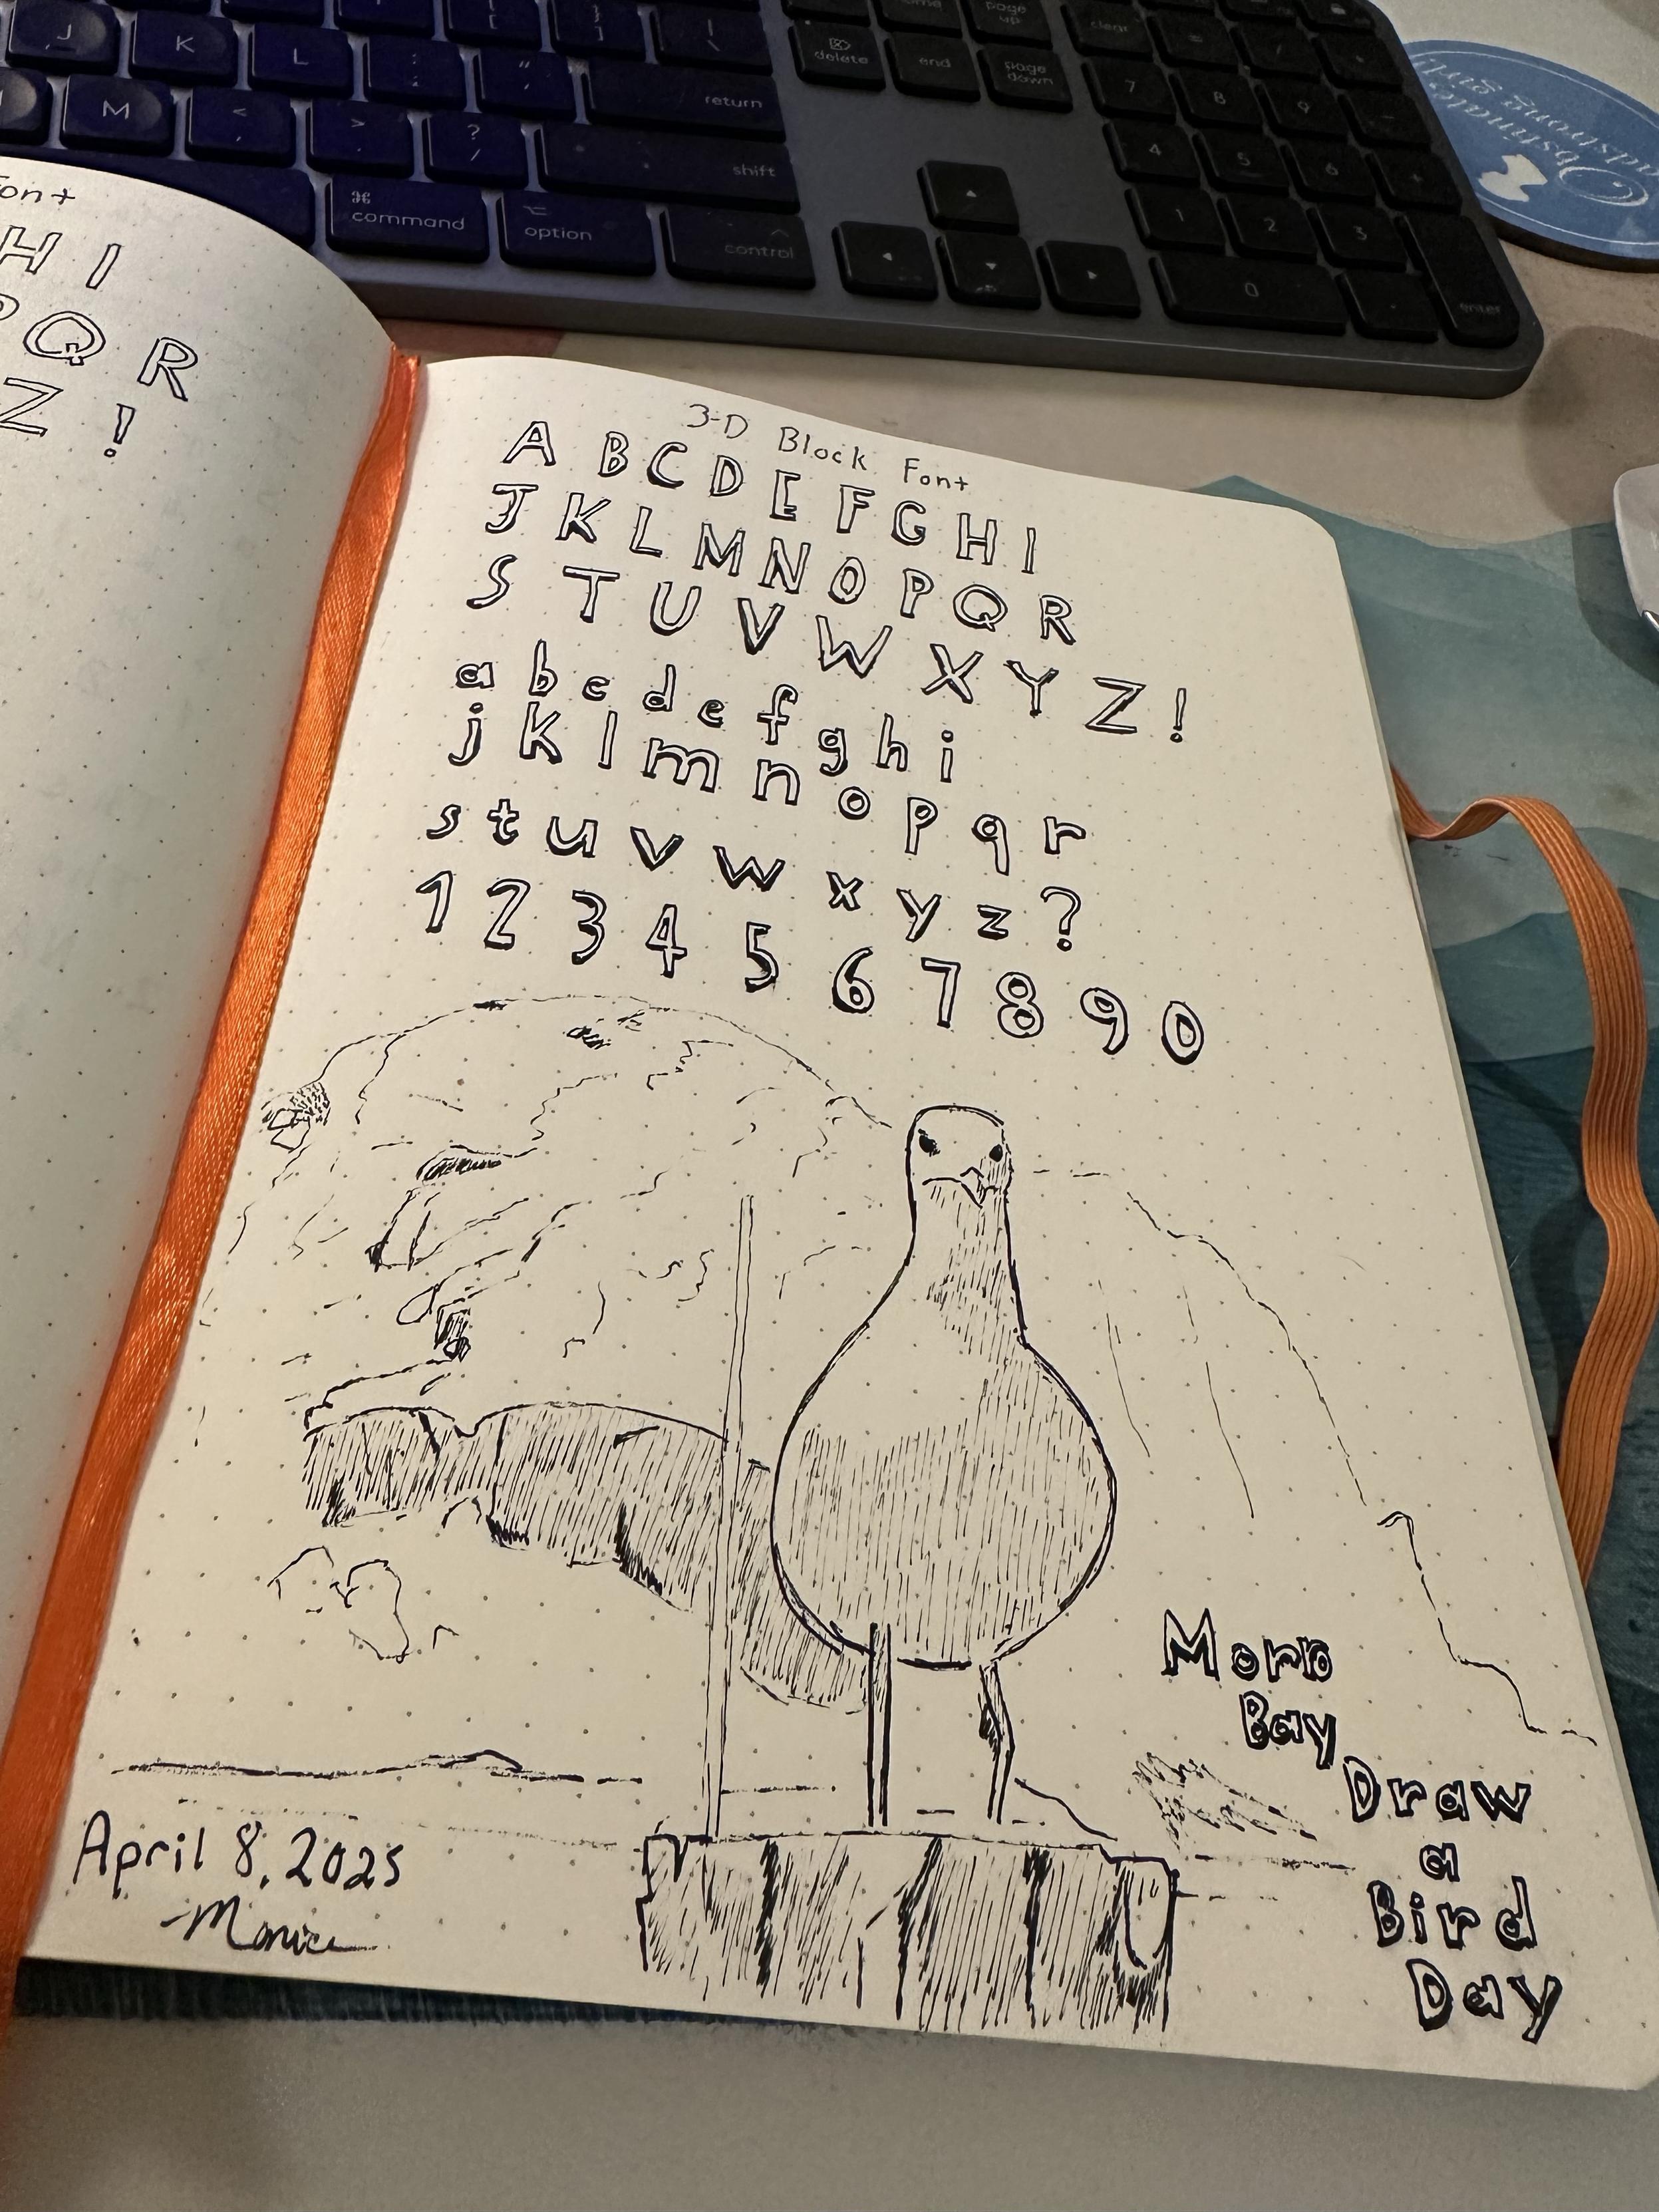 J K L : ;
" '
{ [ } ] | \
return
M < , > . ? /
shift
⌘ command
⌥ option
^ control
delete
end
page up
page down
clear
=
/
7 8 9
4 5 6
1 2 3
0
enter
Font
H I
P Q R
Z !
3-D Block Font
A B C D E F G H I
J K L M N O P Q R
S T U V W X Y Z !
a b c d e f g h i
j k l m n o p q r
s t u v w x y z ?
1 2 3 4 5 6 7 8 9 0
Morro
Bay
Draw
a
Bird
Day
April 8, 2025
-Monica